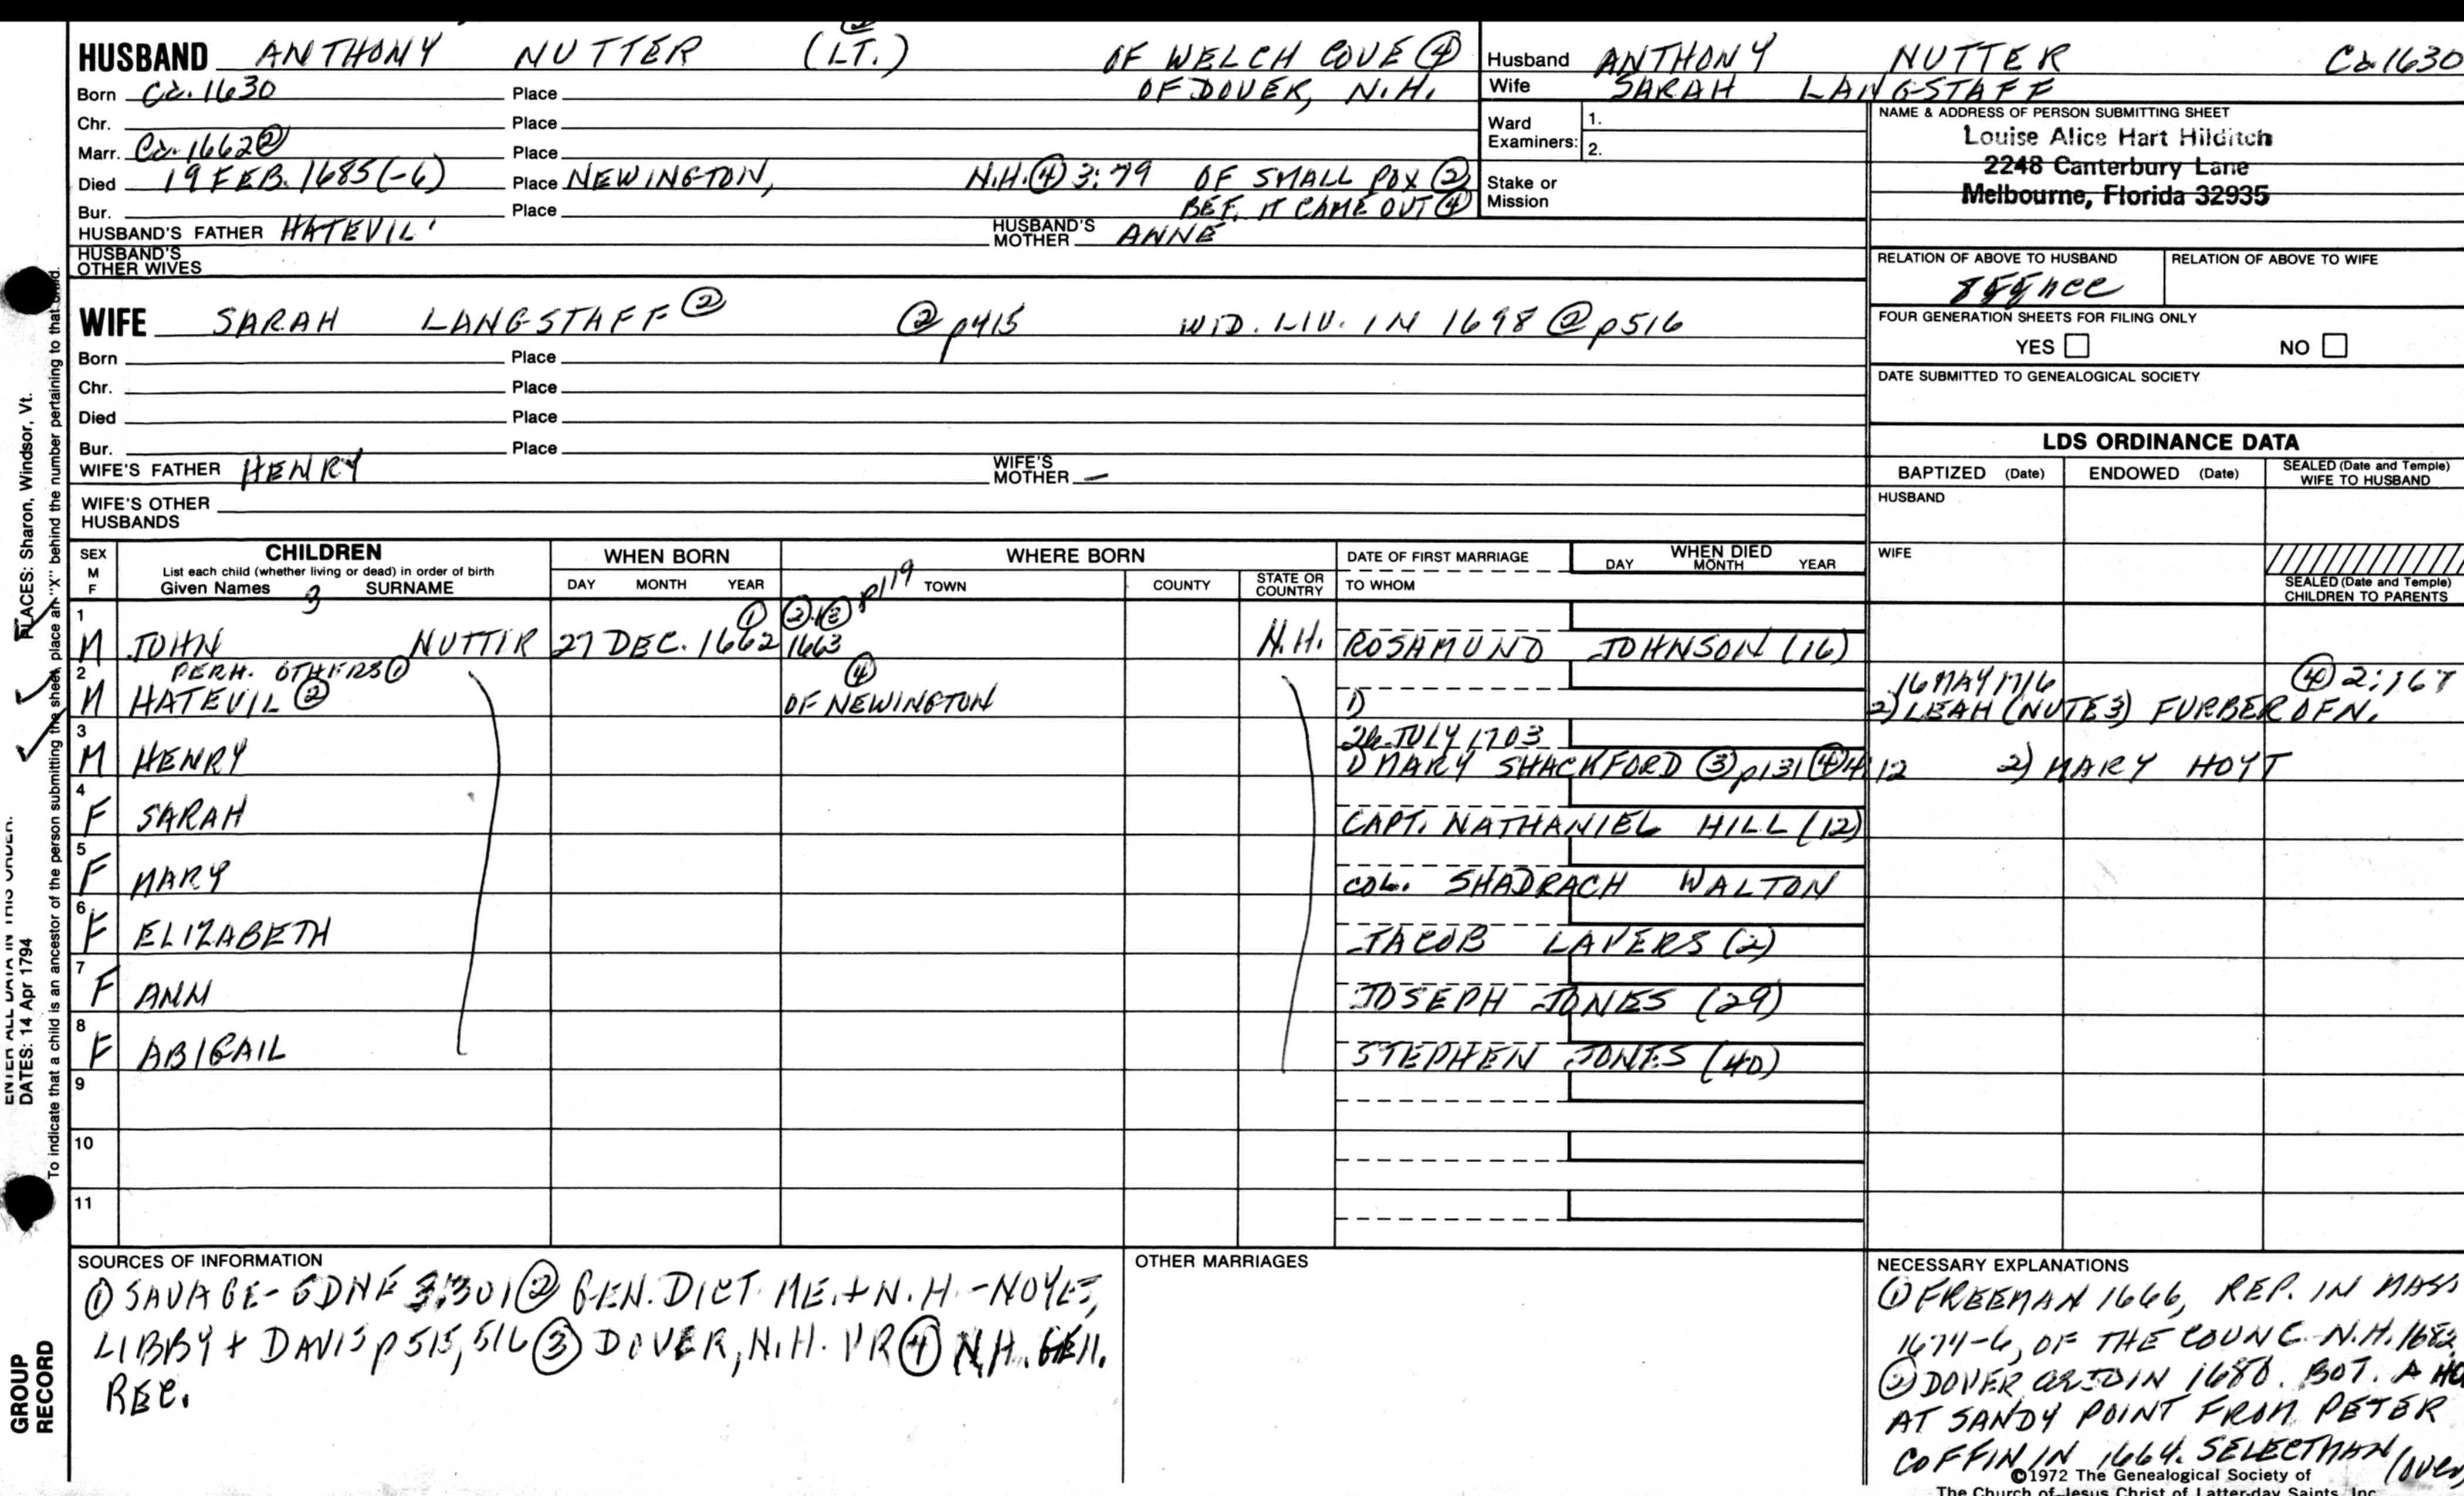 HUSBAND ANTHONY NUTTER (LT.) OF WELCH COVE ④
Born Ca. 1630 Place OF DOVER, N.H.
Chr. Place
Marr. Ca. 1662 ② Place
Died 19 FEB. 1685(-6) Place NEWINGTON, N.H. ④ 3:79 OF SMALL POX ②
Bur. Place BEF. IT CAME OUT ④
HUSBAND'S FATHER HATEVIL HUSBAND'S MOTHER ANNE
HUSBAND'S OTHER WIVES
Husband ANTHONY NUTTER Ca 1630
Wife SARAH LANGSTAFF
Ward Examiners: 1.
2.
Stake or Mission
NAME & ADDRESS OF PERSON SUBMITTING SHEET
Louise Alice Hart Hilditch
2248 Canterbury Lane
Melbourne, Florida 32935
RELATION OF ABOVE TO HUSBAND RELATION OF ABOVE TO WIFE
FOUR GENERATION SHEETS FOR FILING ONLY
YES NO
DATE SUBMITTED TO GENEALOGICAL SOCIETY
WIFE SARAH LANGSTAFF ② ② p415 WID. LIV. IN 1698 ② p516
Born Place
Chr. Place
Died Place
Bur. Place
WIFE'S FATHER HENRY WIFE'S MOTHER —
WIFE'S OTHER HUSBANDS
LDS ORDINANCE DATA
BAPTIZED (Date) ENDOWED (Date) SEALED (Date and Temple) WIFE TO HUSBAND
HUSBAND
WIFE
SEALED (Date and Temple) CHILDREN TO PARENTS
SEX M F CHILDREN WHEN BORN WHERE BORN DATE OF FIRST MARRIAGE WHEN DIED
List each child (whether living or dead) in order of birth
Given Names SURNAME DAY MONTH YEAR TOWN COUNTY STATE OR COUNTRY TO WHOM DAY MONTH YEAR
3 ① ②③ p119
1 M JOHN NUTTER 27 DEC. 1662 1663 N.H. ROSAMUND JOHNSON (16)
PERH. OTHERS ① ④ 16 MAY 1716 ④ 2:167
2 M HATEVIL ② OF NEWINGTON 1) 2) LEAH (NUTE 3) FURBER OF N.
26 JULY 1703
3 M HENRY 1) MARY SHACKFORD ③ p131 ④ 4:12 2) MARY HOYT
4 F SARAH CAPT. NATHANIEL HILL (12)
5 F MARY COL. SHADRACH WALTON
6 F ELIZABETH JACOB LAVERS (2)
7 F ANN JOSEPH JONES (29)
8 F ABIGAIL STEPHEN JONES (40)
9
10
11
SOURCES OF INFORMATION
① SAVAGE-GDNE 3:301 ② GEN. DICT. ME. + N.H. - NOYES,
LIBBY + DAVIS p515, 516 ③ DOVER, N.H. VR ④ N.H. GEN.
REC.
OTHER MARRIAGES
NECESSARY EXPLANATIONS
① FREEMAN 1666, REP. IN MASS
1674-6, OF THE COUNC. N.H. 1682
② DOVER 1680. BOT. A
AT SANDY POINT FROM PETER
COFFIN IN 1664. SELECTMAN (over)
©1972 The Genealogical Society of
The Church of Jesus Christ of Latter-day Saints, Inc.
PLACES: Sharon, Windsor, Vt.
ENTER ALL DATA IN THIS ORDER:
DATES: 14 Apr 1794
To indicate that a child is an ancestor of the person submitting the sheet, place an "X" behind the number pertaining to that child.
GROUP
RECORD